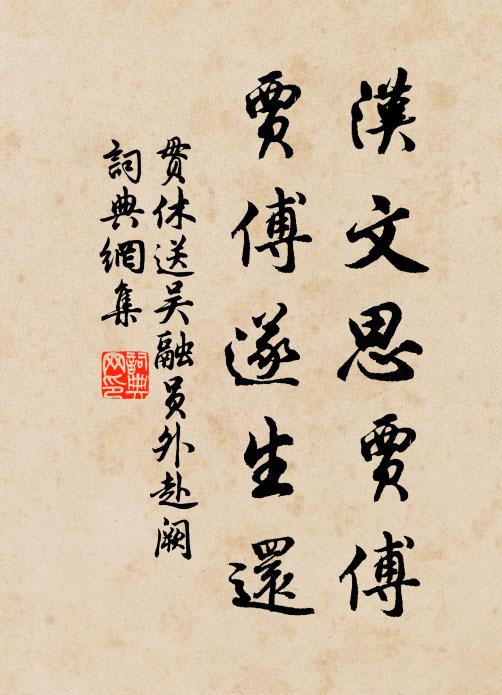 漢文思賈傅
賈傅遂生還
貫休送吴融員外赴闕
詞典網集
詞典網印